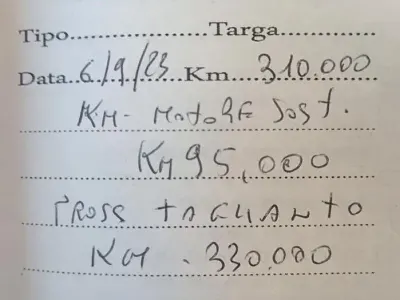 Tipo....................Targa..............
Data..6/9/23...Km....310.000
KM- MOTORE SOST.
KM 95.000
PROSS TAGLIANTO
KM . 330.000